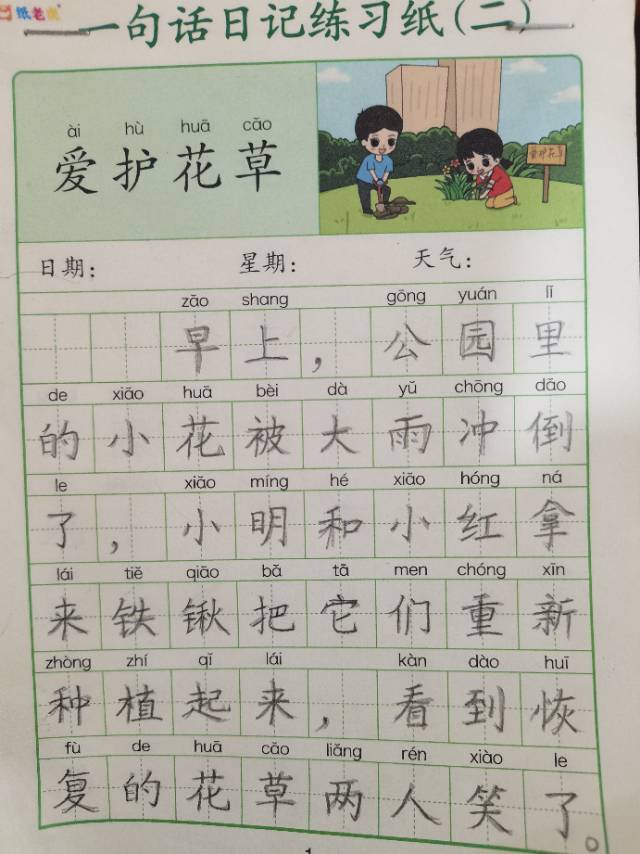 纸老虎
一句话日记练习纸(二)
ài hù huā cǎo
爱护花草
爱护花草
日期： 星期： 天气：
zǎo shang gōng yuán lǐ
早上，公园里
de xiǎo huā bèi dà yǔ chōng dǎo
的小花被大雨冲倒
le xiǎo míng hé xiǎo hóng ná
了，小明和小红拿
lái tiě qiāo bǎ tā men chóng xīn
来铁锹把它们重新
zhòng zhí qǐ lái kàn dào huī
种植起来，看到恢
fù de huā cǎo liǎng rén xiào le
复的花草两人笑了。